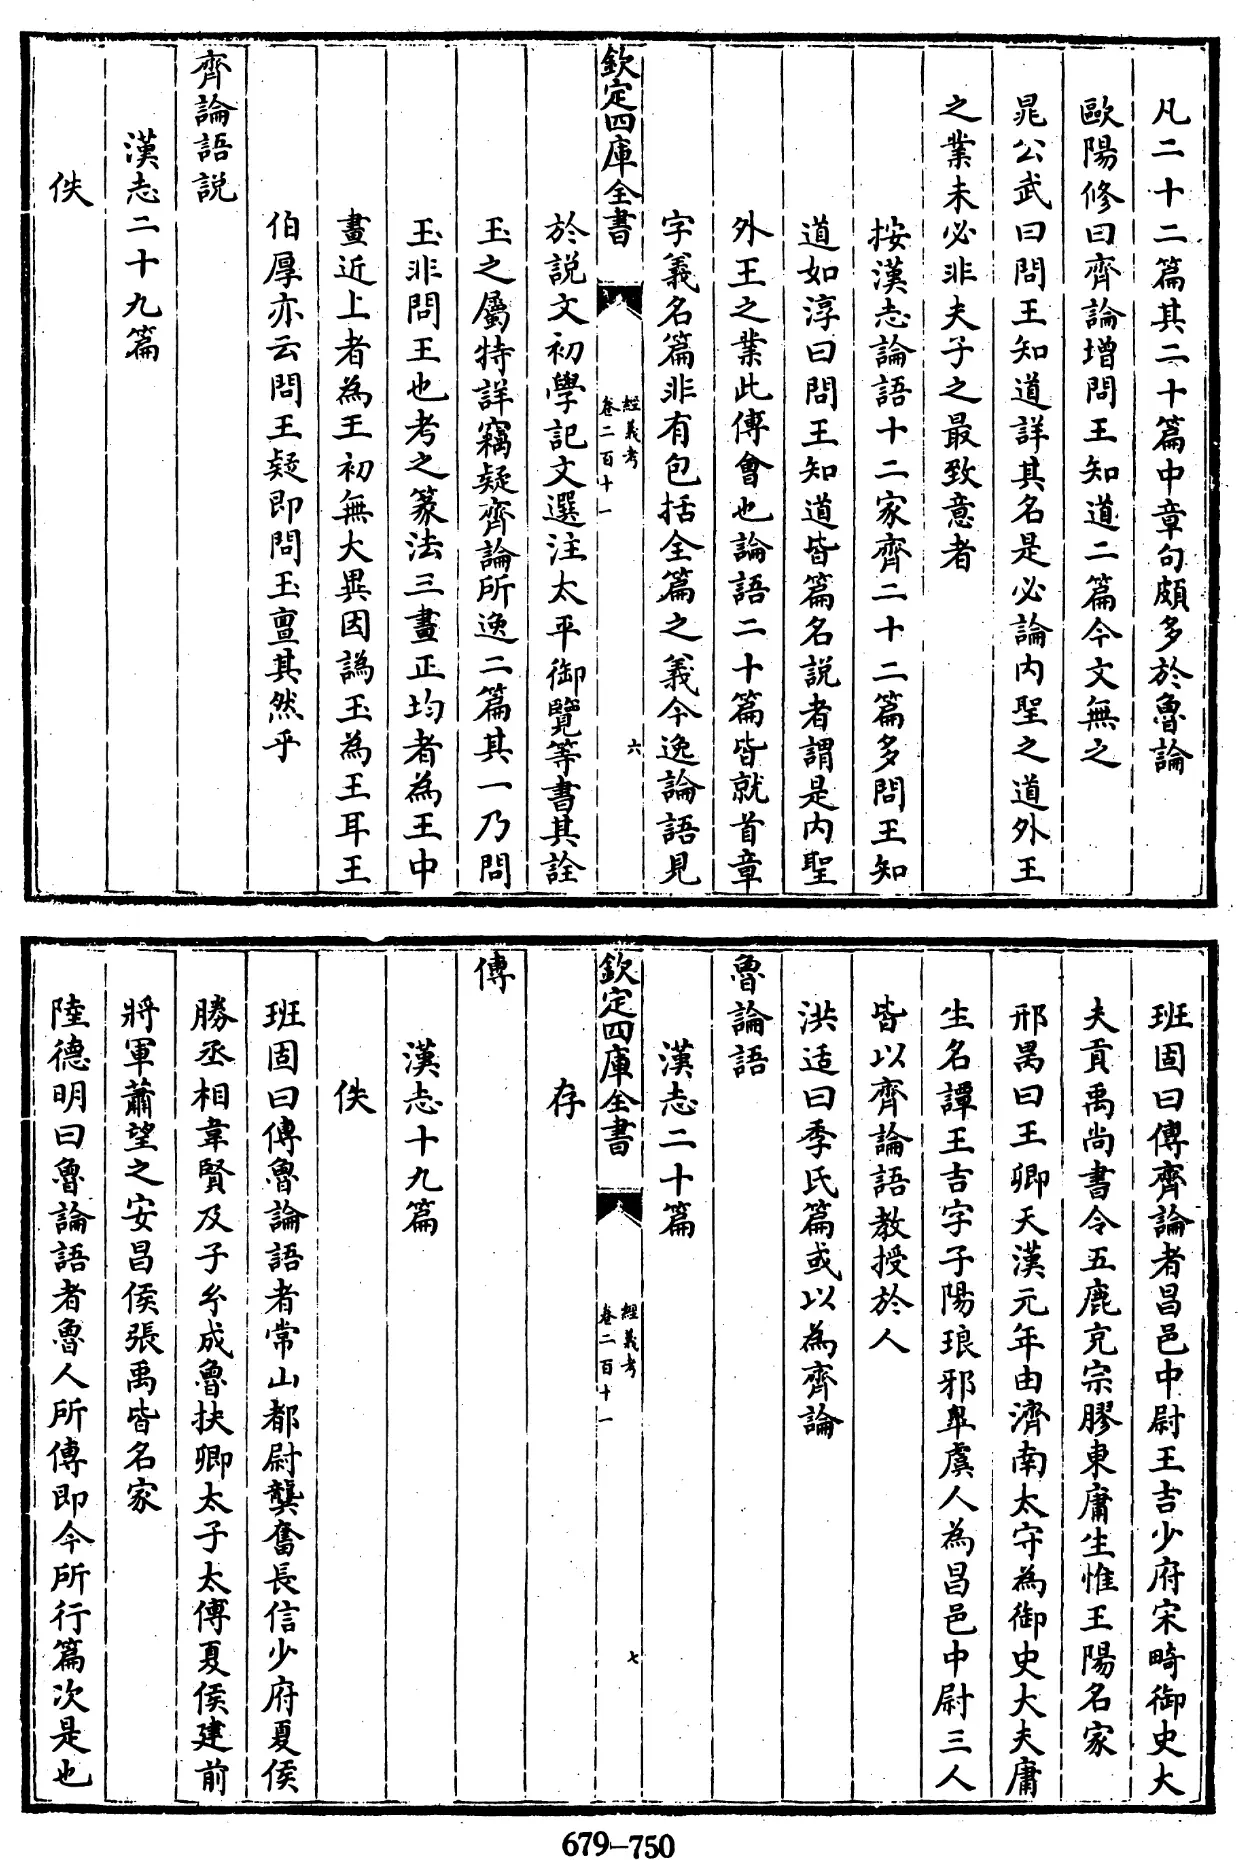 凡二十二篇其二十篇中章句頗多於魯論
歐陽修曰齊論增問王知道二篇今文無之
晁公武曰問王知道詳其名是必論内聖之道外王
之業未必非夫子之最致意者
按漢志論語十二家齊二十二篇多問王知
道如淳曰問王知道皆篇名説者謂是内聖
外王之業此傅會也論語二十篇皆就首章
字義名篇非有包括全篇之義今逸論語見
欽定四庫全書
經義考
卷二百十一
六
於説文初學記文選注太平御覽等書其詮
玉之屬特詳竊疑齊論所逸二篇其一乃問
玉非問王也考之篆法三畫正均者為王中
畫近上者為王初無大異因譌玉為王耳王
伯厚亦云問王疑即問玉亶其然乎
齊論語説
漢志二十九篇
佚
班固曰傳齊論者昌邑中尉王吉少府宋畸御史大
夫貢禹尚書令五鹿充宗膠東庸生惟王陽名家
邢昺曰王卿天漢元年由濟南太守為御史大夫庸
生名譚王吉字子陽琅邪臯虞人為昌邑中尉三人
皆以齊論語教授於人
洪适曰季氏篇或以為齊論
魯論語
漢志二十篇
存
欽定四庫全書
經義考
卷二百十一
七
傳
漢志十九篇
佚
班固曰傳魯論語者常山都尉龔奮長信少府夏侯
勝丞相韋賢及子𤣥成魯扶卿太子太傅夏侯建前
將軍蕭望之安昌侯張禹皆名家
陸德明曰魯論語者魯人所傳即今所行篇次是也
679-750